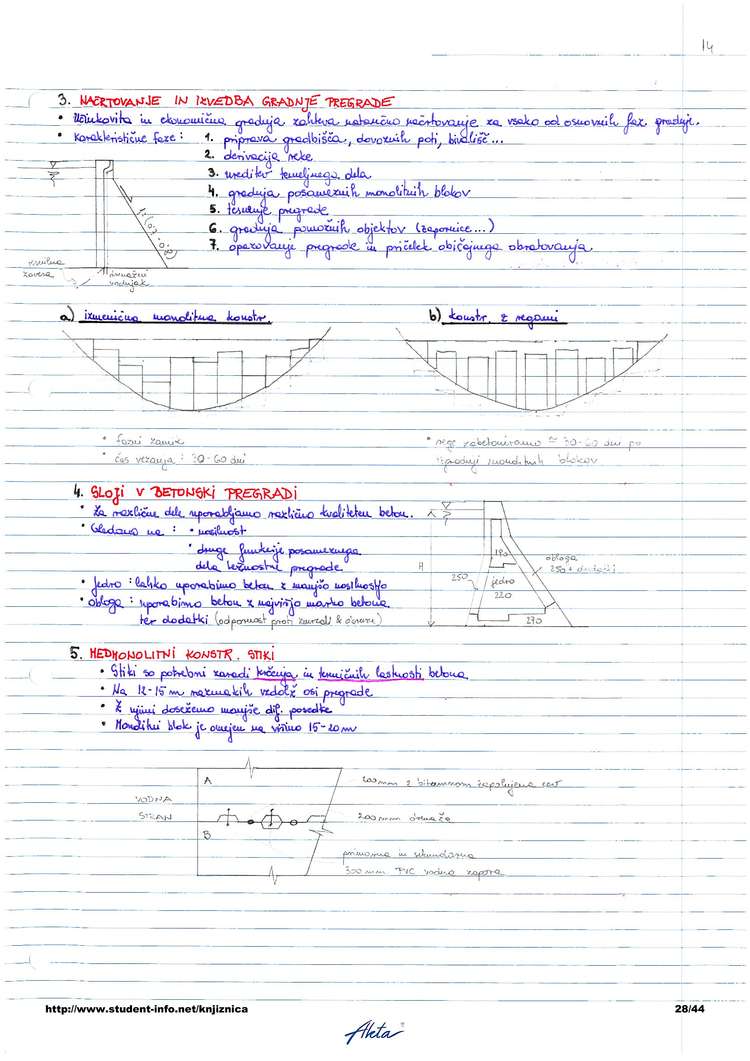 14
3. NAČRTOVANJE IN IZVEDBA GRADNJE PREGRADE
• Učinkovita in ekonomična gradnja zahteva natančno načrtovanje za vsako od osnovnih faz gradnje.
• Karakteristične faze: 1. priprava gradbišča, dovoznih poti, bivališč...
2. derivacija reke
3. ureditev temeljnega dela
4. gradnja posameznih monolitnih blokov
5. tesnenje pregrade
6. gradnja pomožnih objektov (zapornice...)
7. opazovanje pregrade in pričetek običajnega obratovanja
zavesa
a) izmenična monolitna konstr.
b) konstr. z regami
• fazni zamik
• čas vezanja: 30-60 dni
• rege zabetoniramo ≅ 30-60 dni po
izgradnji monolitnih blokov
4. SLOJI V BETONSKI PREGRADI
• Za različne dele uporabljamo različno kvaliteten beton.
• Gledamo na: • nosilnost
• druge funkcije posameznega
dela težnostne pregrade
• Jedro: lahko uporabimo beton z manjšo nosilnostjo
• obloga: uporabimo beton z najvišjo marko betona
ter dodatki (odpornost proti zmrzali & obrusu)
H
190
250
jedro
220
obloga
250 + dodatki
270
5. MEDMONOLITNI KONSTR. STIKI
• Stiki so potrebni zaradi krčenja in termičnih lastnosti betona
• Na 12-15 m razmakih vzdolž osi pregrade
• Z njimi dosežemo manjše dif. posedke
• Monolitni blok je omejen na višino 15-20 m
A
VODNA
STRAN
B
200 mm z bitumnom zapolnjena cev
200 mm drenaža
primarna in sekundarna
300 mm PVC vodna zapora
http://www.student-info.net/knjiznica
28/44
Aleta